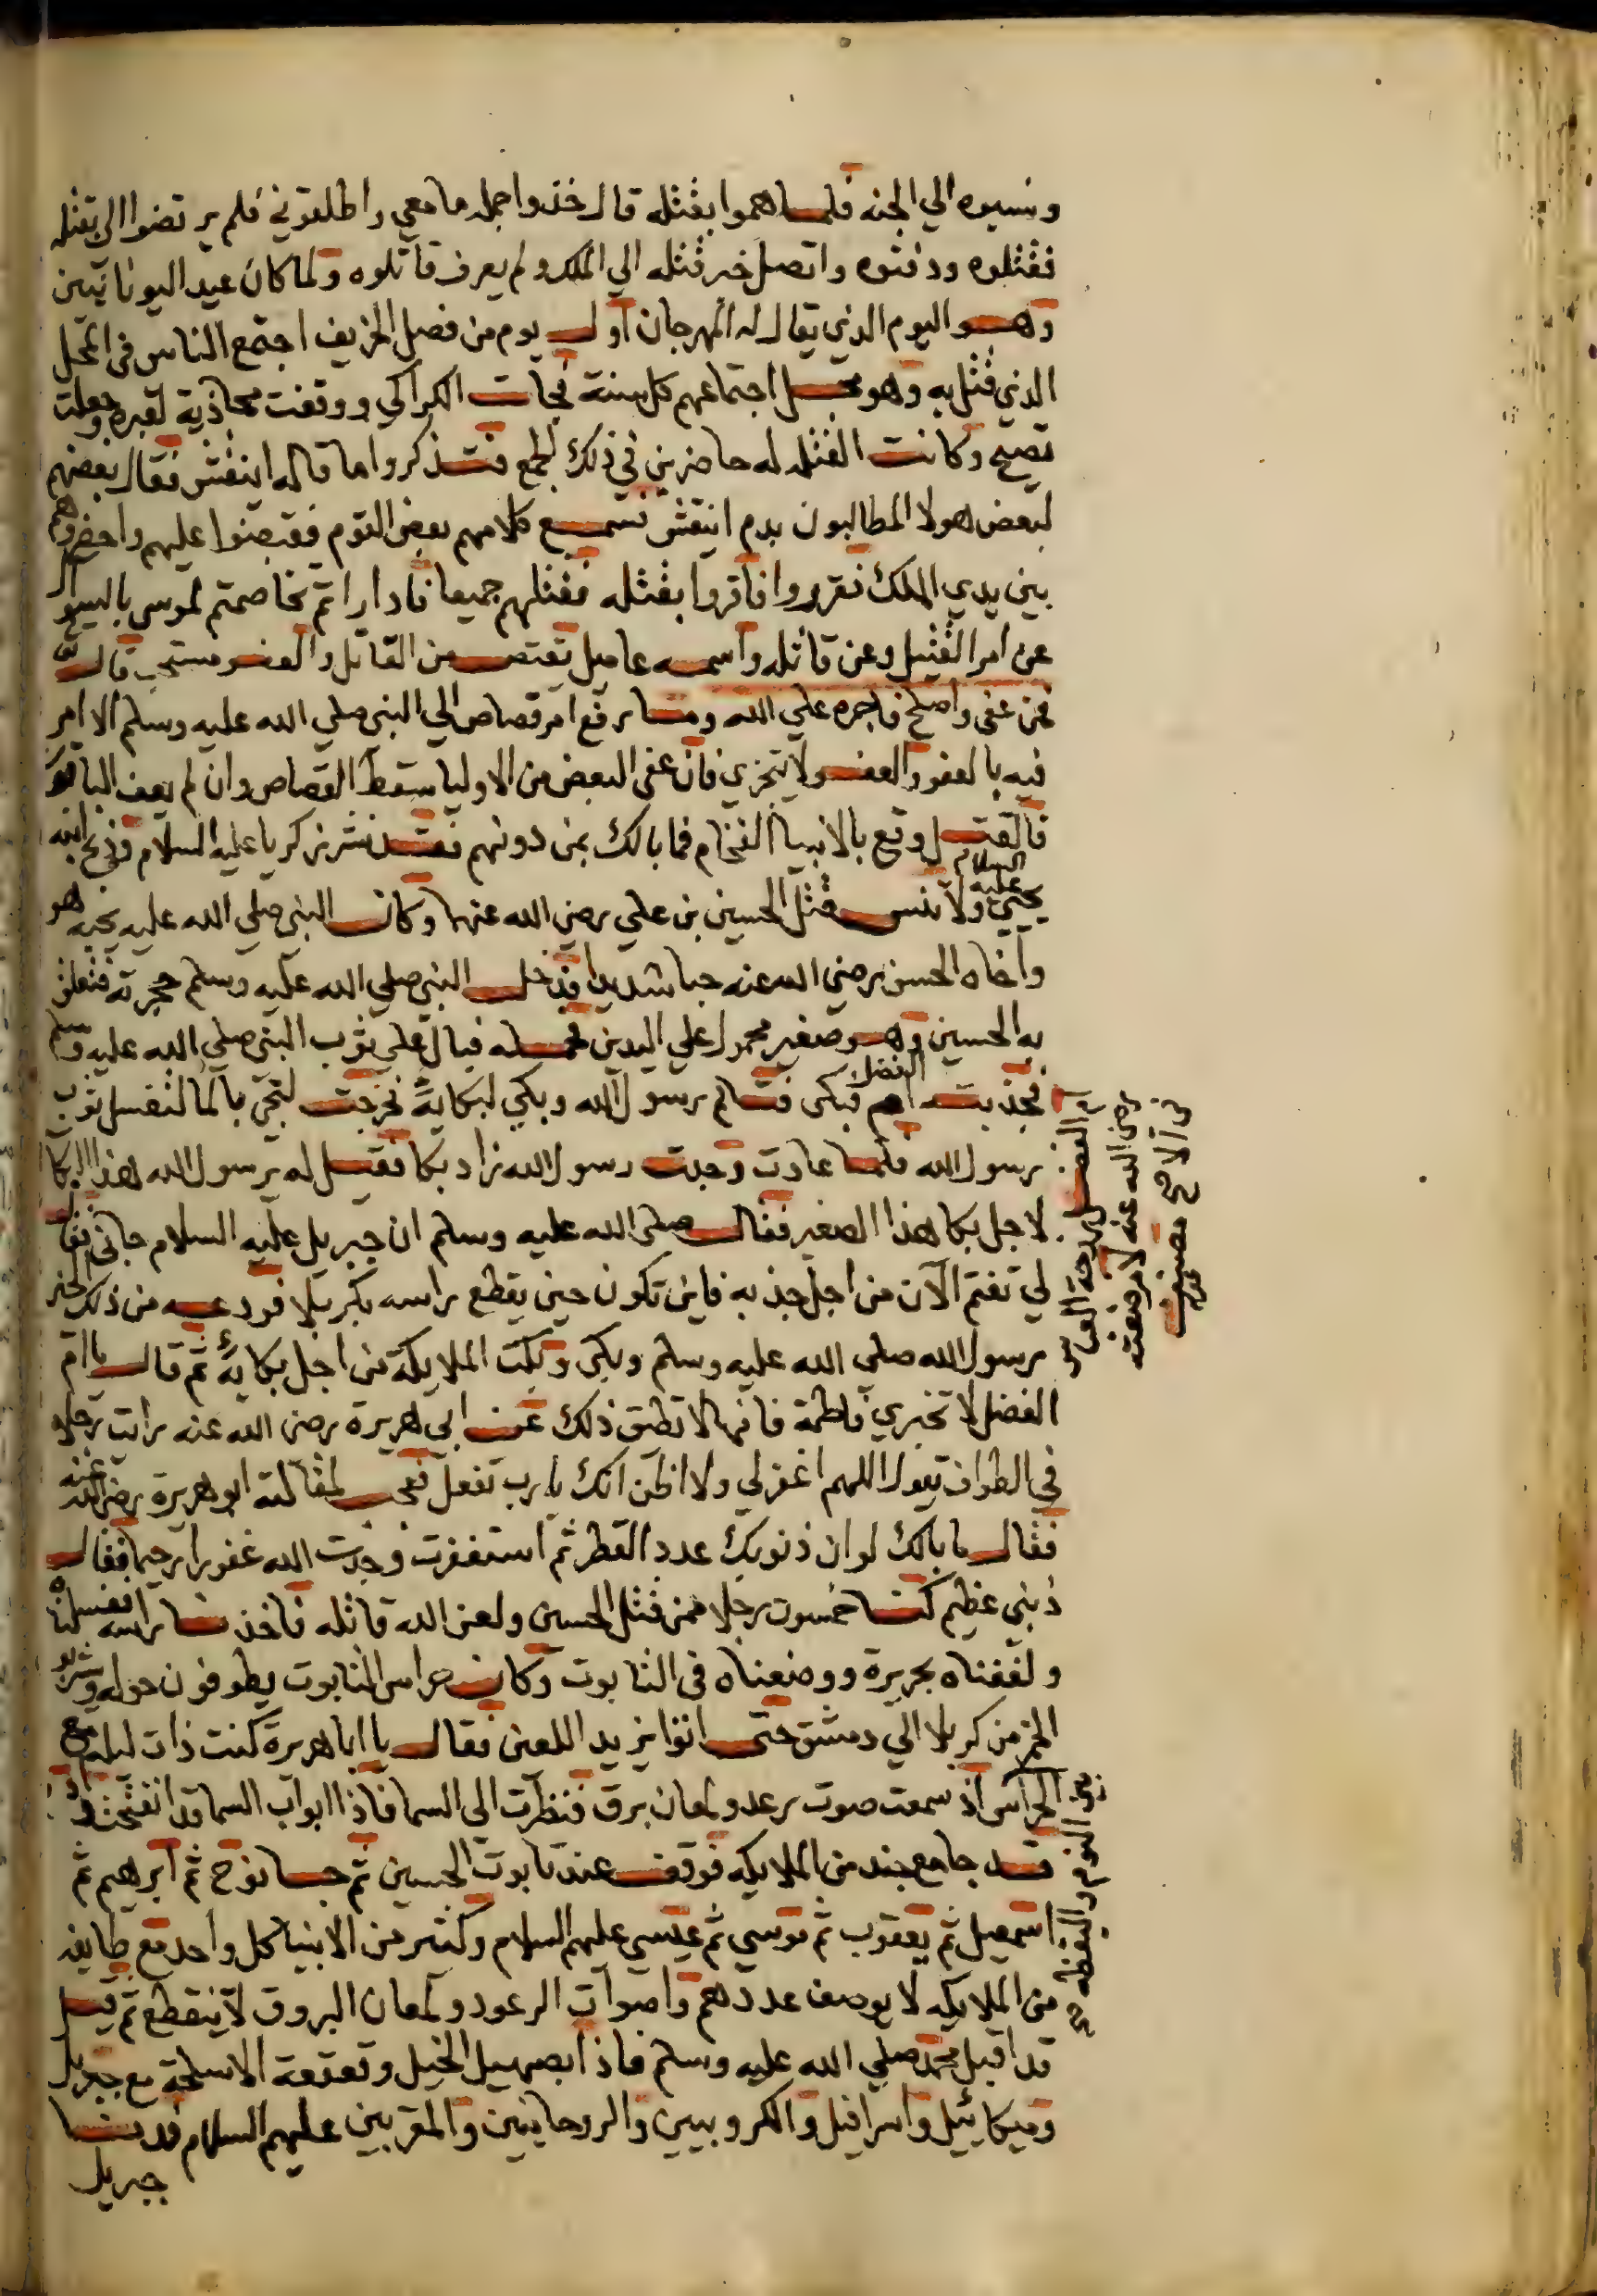 ونسبوه الي الجنه فلما هموا بقتله قال خذوا جمله ما معي واطلقوني فلم يرتضوا الا بقتله
فقتلوه ودفنوه واتصل خبر قتله الي الملك ولم يعرف قاتلوه ولما كان عيد اليونانيين
وهو اليوم الذي يقال له المهرجان اول يوم من فصل الخريف اجتمع الناس في المحل
الذي قتل به وهو محل اجتماعهم كل سنة فجات الكراكي ووقفت محاذية لقبره وجعلت
تصيح وكانت القتله له حاضرين في ذلك الجمع فتذكروا ما قاله اينقش فقال بعضهم
لبعض هولا المطالبون بدم اينقش فسمع كلامهم بعض القوم فقبضوا عليهم واحضروهم
بين يدي الملك فقرروا فاقروا بقتله فقتلهم جميعا فادارأتم تخاصمتم لموسى بالسوال
عن امر القتيل وعن قاتله واسمه عاميل يقتص من القاتل والعفو مستحب قال تع
فمن عفى واصلح فاجره علي الله وما رفع امر قصاص الي النبي صلي الله عليه وسلم الا امر
فيه بالعفو والعفو لا يتجزي فان عفى البعض من الاوليا سقط القصاص وان لم يعف الباقون
فالقتل وقع بالانبيا الفخام فما بالك بمن دونهم فقد نشر زكريا عليه السلام وذبح ابنه
يحيي عليه السلام ولا تنس قتل الحسين بن علي رضي الله عنهما وكان النبي صلي الله عليه يحبه هو
واخاه الحسن رضي الله عنه حبا شديدا فدخل النبي صلي الله عليه وسلم حجرته فتعلق
به الحسين وهو صغير محمول علي اليدين فحمله فبال علي ثوب النبي صلي الله عليه وسلم
فجذبته ام الفضل فبكى فتالم رسول الله وبكي لبكايه فخرجت لتجي بالما لتغسل ثوب
رسول الله فلما عادت وجدت رسول الله زاد بكا فقيل له يرسول الله هذا البكا
لاجل بكا هذا الصغير فقال صلى الله عليه وسلم ان جبريل عليه السلام جاني فقال
لي تغتم الآن من اجل جذبه فاين تكون حين يقطع راسه بكربلا فورد عليه من ذلك الخبر
رسول الله صلي الله عليه وسلم وبكى وبكت الملايكة من اجل بكايه ثم قال يا ام
الفضل لا تخبري فاطمة فانها لا تطق ذلك عن ابي هريرة رضي الله عنه رايت رجلا
في الطواف يقول اللهم اغفر لي ولا اظن انك يا رب تفعل فعجب لمقالته ابو هريرة رضي الله عنه
فقال ما بالك لو ان ذنوبك عدد القطر ثم استغفرت وجدت الله غفورا رحيما فقال
ذنبي عظيم كنا خمسون رجلا ممن قتل الحسين ولعن الله قاتله فاخذنا راسه فغسلناه
ولففناه بحريرة ووضعناه في التابوت وكان حراس التابوت يطوفون حوله وشربوا
الخمر من كربلا الي دمشق حتى اتوا يزيد اللعين فقال يا ابا هريرة كنت ذات ليله مع
الحراس اذ سمعت صوت رعد ولمعان برق فنظرت الى السما فاذا ابواب السما قد انفتحت وادم
قد جا مع جند من الملايكه فوقف عند تابوت الحسين ثم جا نوح ثم ابرهيم ثم
اسمعيل ثم يعقوب ثم موسي ثم عيسي عليهم السلام وكثير من الانبيا كل واحد مع طايفه
من الملايكه لا يوصف عددهم واصوات الرعود ولمعان البروق لا ينقطع ثم قيل
قد اقبل محمد صلي الله عليه وسلم فاذا بصهيل الخيل وقعقعة الاسلحة مع جبريل
وميكائيل واسرافيل والكروبيين والروحانيين والمقربين عليهم السلام فدنا
جبريل
ام الفضل زوجة العباس
رضي الله عنه لا مرضعته
في الاصح
بين النوم واليقظه